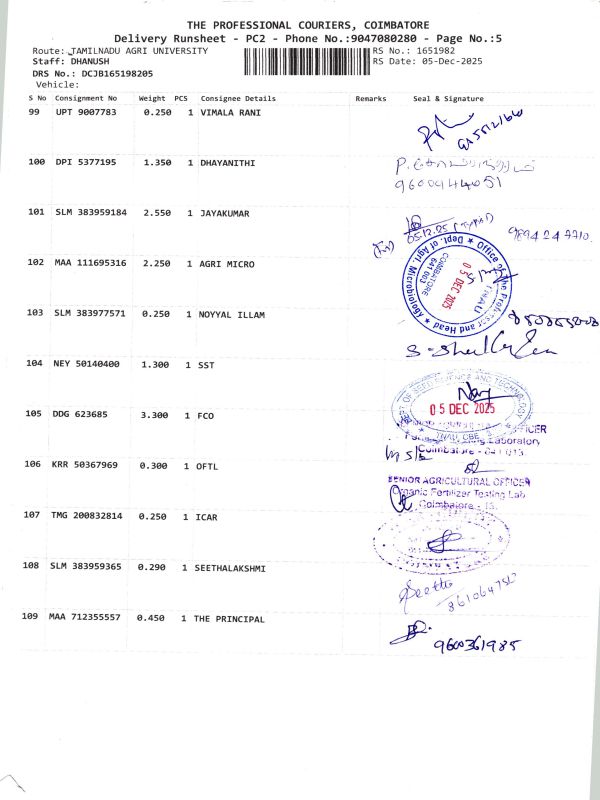 THE PROFESSIONAL COURIERS, COIMBATORE
Delivery Runsheet - PC2 - Phone No.:9047080280 - Page No.:5
Route: TAMILNADU AGRI UNIVERSITY RS No.: 1651982
Staff: DHANUSH RS Date: 05-Dec-2025
DRS No.: DCJB165198205
Vehicle:
S No Consignment No Weight PCS Consignee Details Remarks Seal & Signature
99 UPT 9007783 0.250 1 VIMALA RANI
100 DPI 5377195 1.350 1 DHAYANITHI
9600944051
101 SLM 383959184 2.550 1 JAYAKUMAR
05.12.25
9894247710
102 MAA 111695316 2.250 1 AGRI MICRO
Office of the Professor and Head ★ Dept. of Agrl. Microbiology ★
TNAU
05 DEC 2025
COIMBATORE
641 003
103 SLM 383977571 0.250 1 NOYYAL ILLAM
104 NEY 50140400 1.300 1 SST
OF SEED SCIENCE AND TECHNOLOGY
05 DEC 2025
TNAU, CBE
105 DDG 623685 3.300 1 FCO
OFFICER
Laboratory
Coimbatore - 641 013
106 KRR 50367969 0.300 1 OFTL
SENIOR AGRICULTURAL OFFICER
Organic Fertilizer Testing Lab
Coimbatore - 13.
107 TMG 200832814 0.250 1 ICAR
108 SLM 383959365 0.290 1 SEETHALAKSHMI
Seetha
109 MAA 712355557 0.450 1 THE PRINCIPAL
9600361985